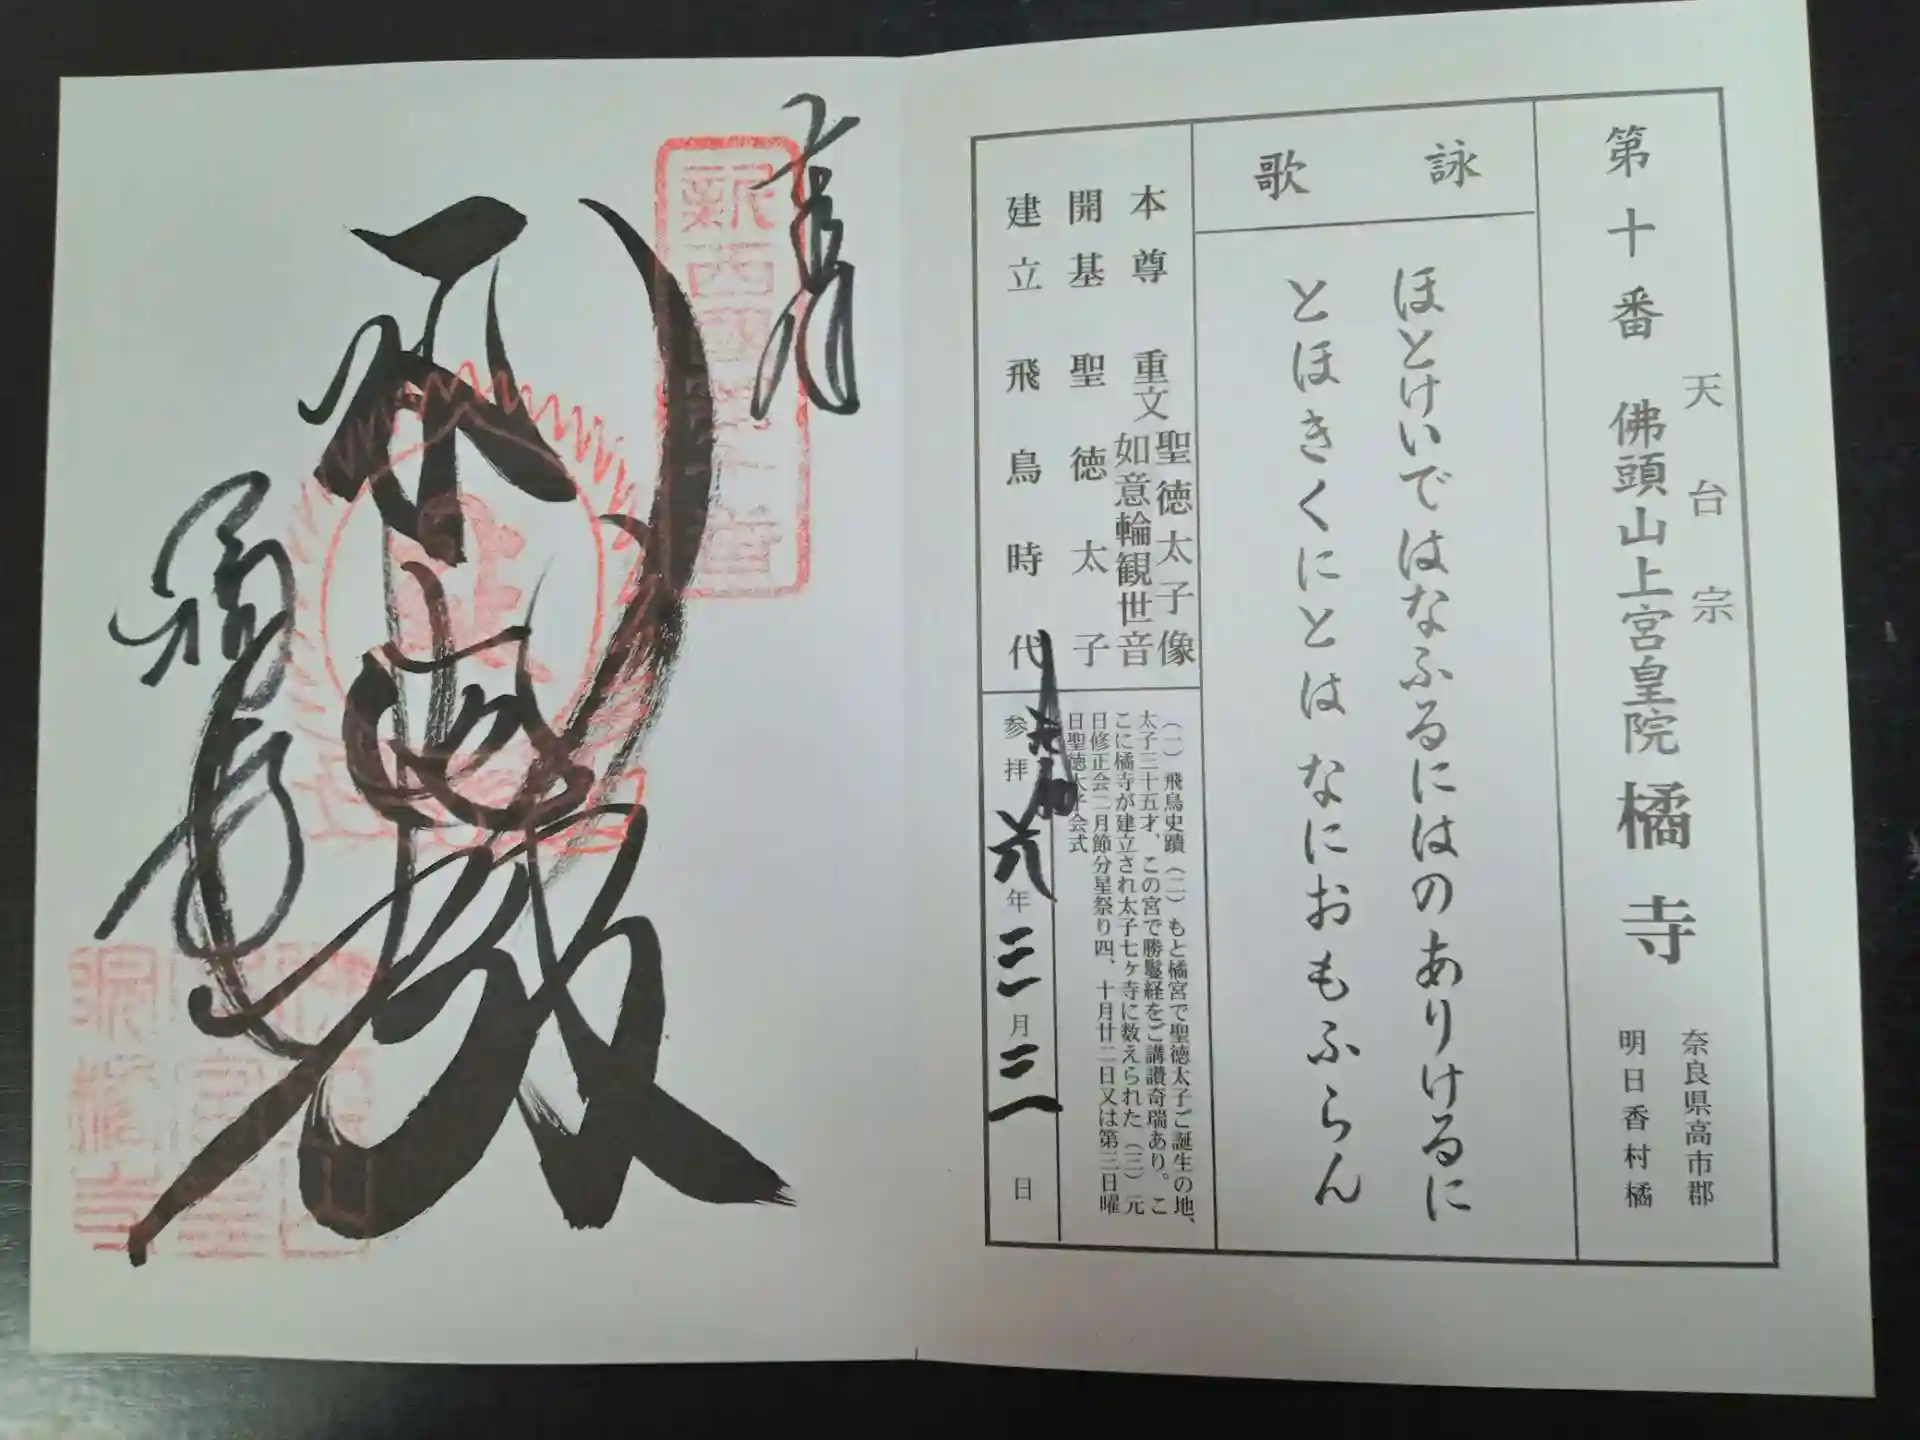 天台宗
第十番 佛頭山上宮皇院 橘寺
奈良県高市郡
明日香村橘
詠歌
ほとけいではなふるにはのありけるに
とほきくにとはなにおもふらん
本尊 重文
聖徳太子像
如意輪観世音
開基 聖徳太子
建立 飛鳥時代
(一)飛鳥史蹟(二)もと橘宮で聖徳太子ご誕生の地、
太子三十五才、この宮で勝鬘経をご講讃奇瑞あり。こ
こに橘寺が建立され太子七ヶ寺に数えられた(三)元
日修正会二月節分星祭り四、十月廿二日又は第三日曜
日聖徳太子会式
参拝 令和六年三月二日
奉拝
新西國第十番
橘寺